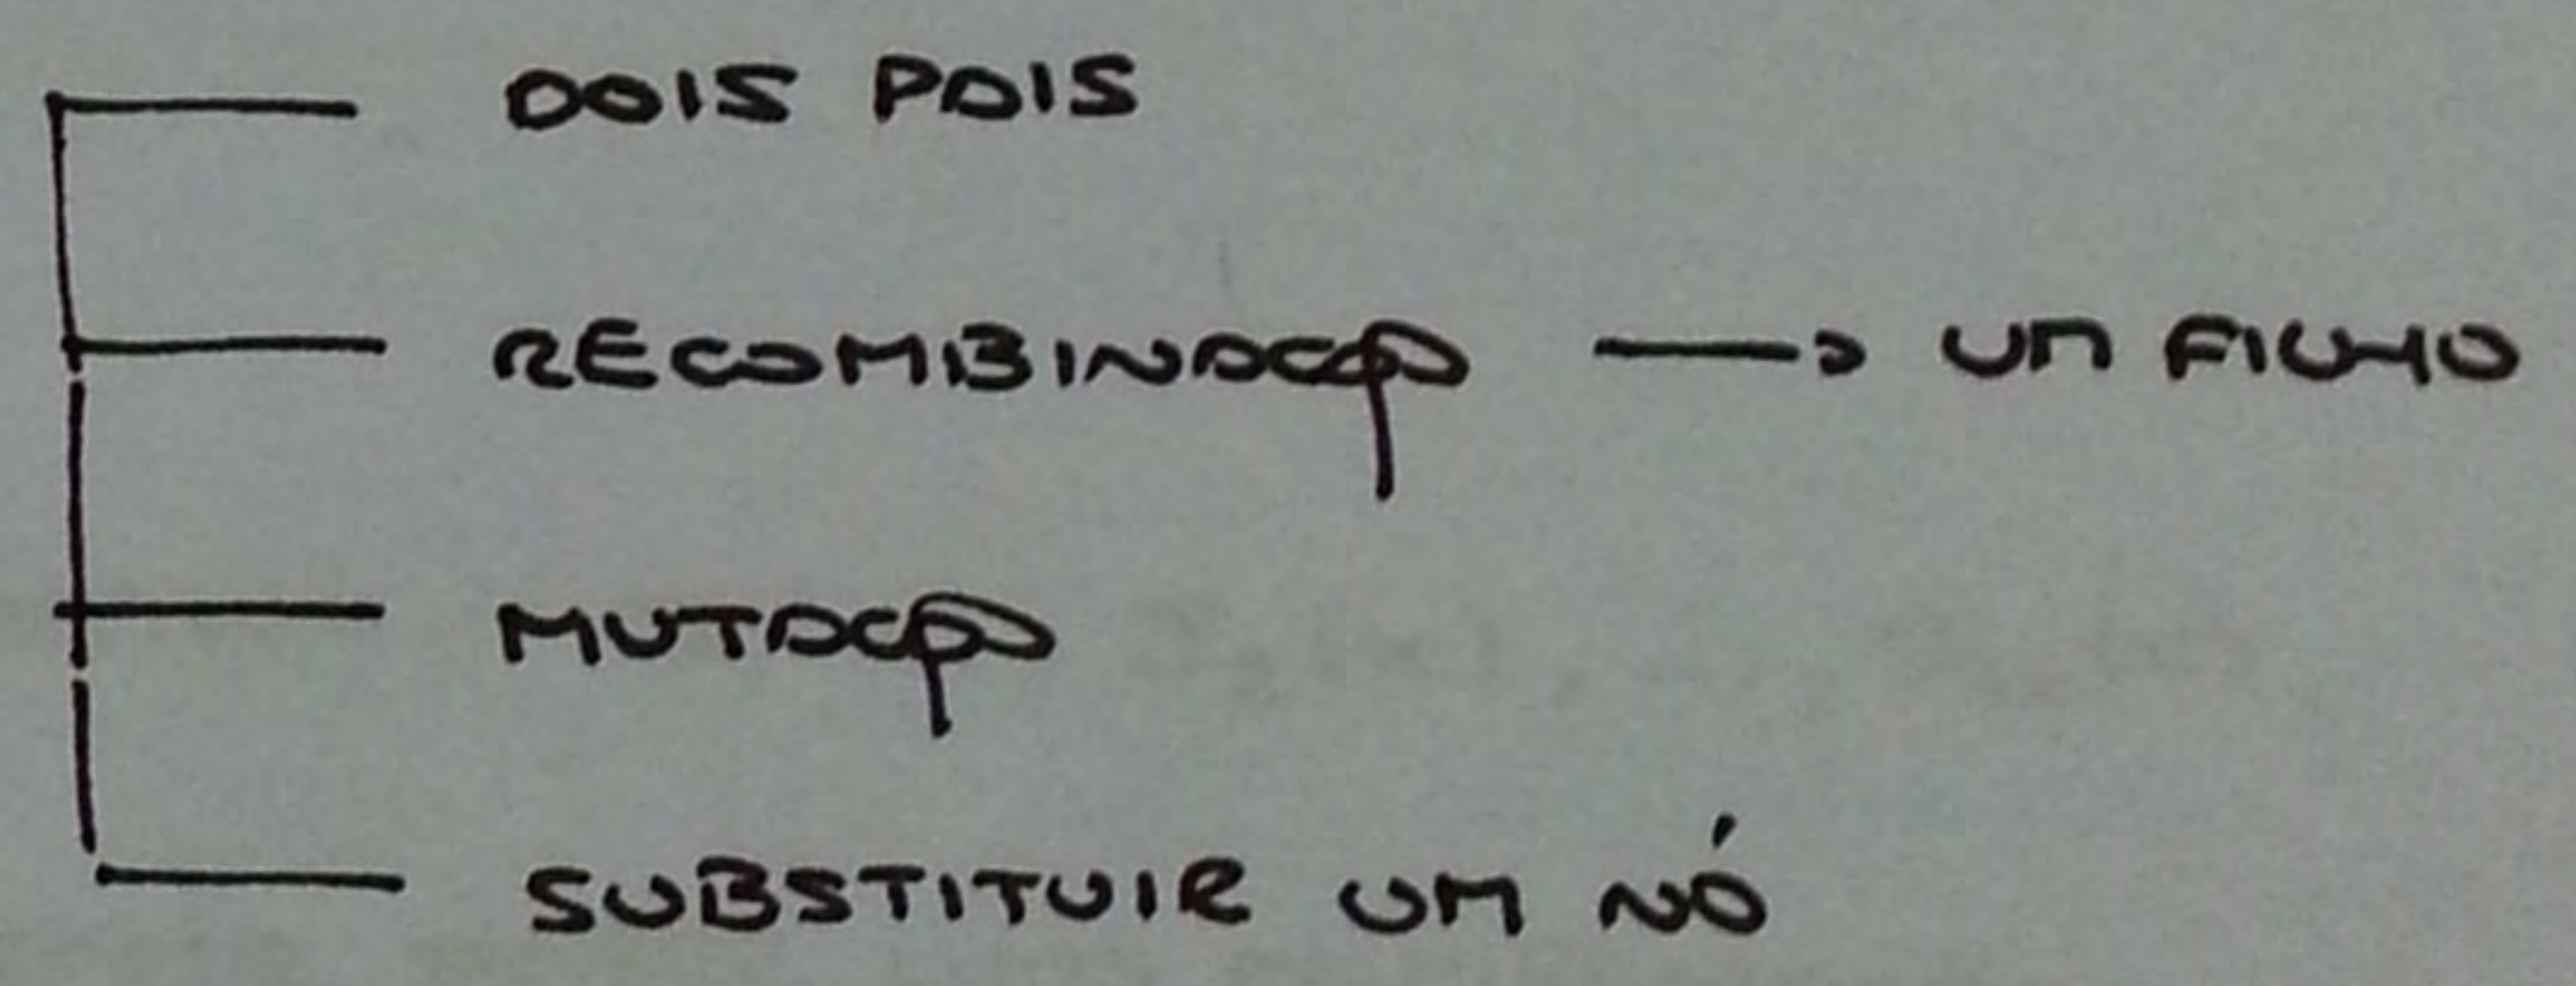 DOIS PAIS
RECOMBINAÇÃO → UM FILHO
MUTAÇÃO
SUBSTITUIR UM NÓ